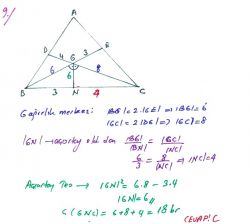 9)
A
D
E
4
3
6
G
6
8
6
B
3
N
4
C
Ağırlık merkezi: |BG|=2.|GE| ⇒ |BG|=6
|GC|=2|DG| ⇒ |GC|=8
|GN| açıortay old dan |BG|/|BN| = |GC|/|NC|
6/3 = 8/|NC| ⇒ |NC|=4
Açıortay Teo → |GN|² = 6.8 - 3.4
|GN|=6
Ç(GNC) = 6+8+4 = 18 br
CEVAP: C